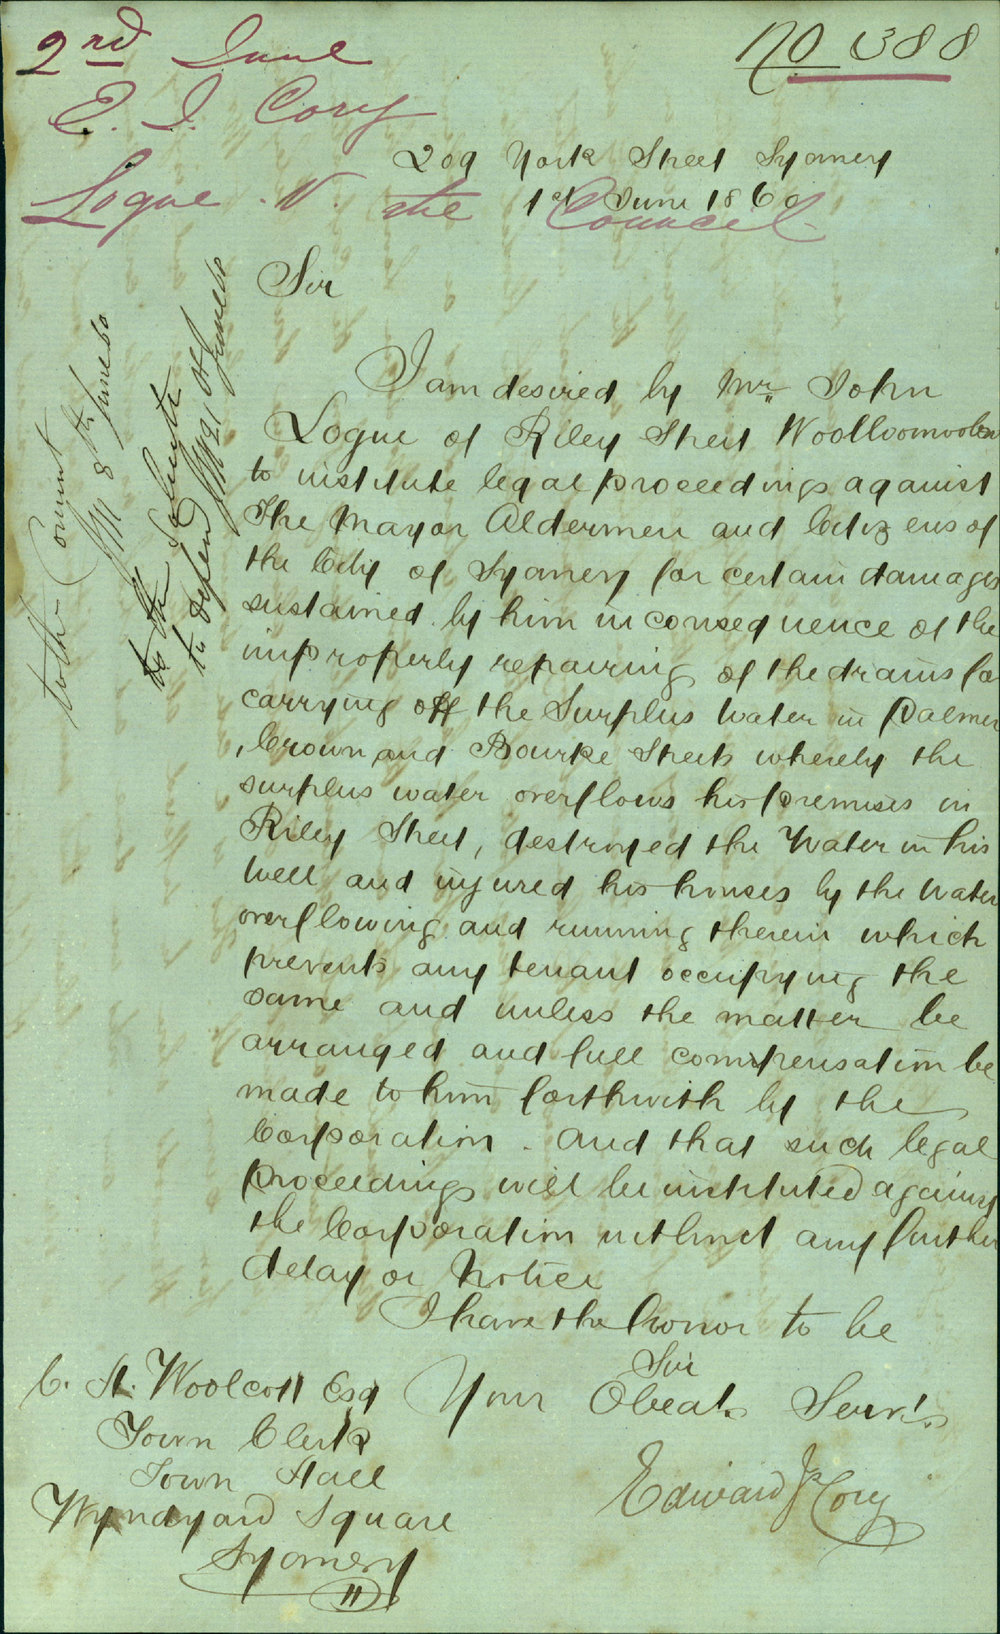 2nd June
No 388
E. J. Cory
209 York Street Sydney
Logue V. the Council
1st June 1860
Sir
I am desired by Mr John
Logue of Riley Street Woolloomooloo
to institute legal proceedings against
The Mayor Aldermen and Citizens of
the City of Sydney for certain damages
sustained by him in consequence of the
improperly repairing of the drains for
carrying off the Surplus Water in Palmer
, Crown and Bourke Streets whereby the
surplus water overflows his premises in
Riley Street, destroyed the Water in his
Well and injured his houses by the Water
overflowing and running therein which
prevents any tenant occupying the
same and unless the matter be
arranged and full compensation be
made to him forthwith by the
Corporation . and that such legal
proceedings will be instituted against
the Corporation without any further
delay or Notice
I have the honor to be
Sir
Your Obedt. Servt.
Edward J Cory
C. H. Woolcott Esq
Town Clerk
Town Hall
Wyndyard Square
Sydney
to the Commt
8th June 60
to the
to defend 21 June 60